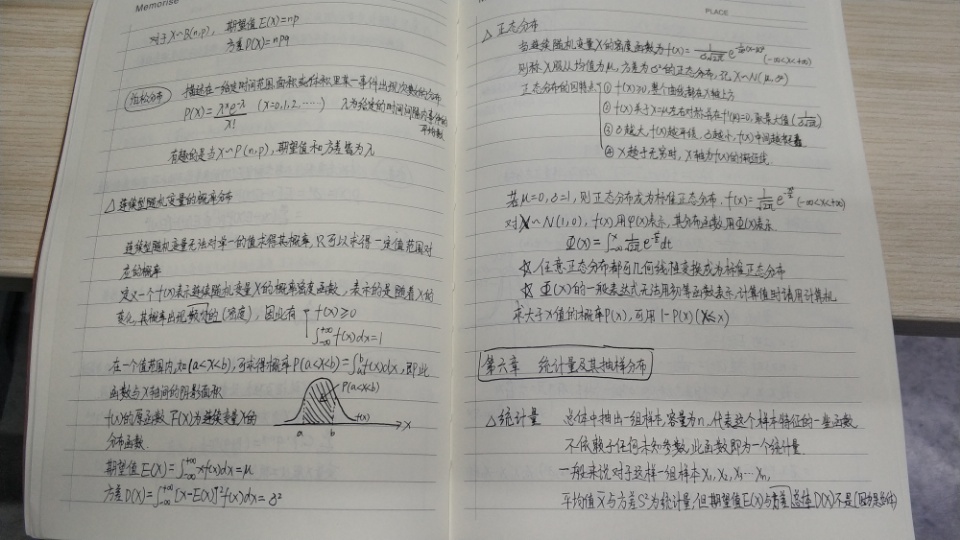 Memorise
对于X~B(n,p), 期望值E(X)=np
方差D(X)=npq
泊松分布 描述在一指定时间范围,面积或体积里某一事件出现次数的分布
P(X)=λˣe^-λ/x! (x=0,1,2,……) λ为给定的时间间隔内事件的
平均数
有趣的是当X~P(n,p), 期望值和方差皆为λ
△连续型随机变量的概率分布
连续型随机变量无法对单一的值求得其概率,只可以求得一定值范围对
应的概率
定义一个f(x)表示连续随机变量X的概率密度函数,表示的是随着X的
变化,其概率出现的(密度),因此有 f(x)≥0
∫_{-∞}^{+∞}f(x)dx=1
在一个值范围内,如(a<X<b),可求得概率P(a<X<b)=∫_a^b f(x)dx,即此
函数与X轴间的阴影面积
P(a<X<b)
f(x)的原函数F(X)为连续变量X的
f(x)
X
a b
分布函数.
期望值E(X)=∫_{-∞}^{+∞}xf(x)dx=μ
方差D(X)=∫_{-∞}^{+∞}[x-E(X)]²f(x)dx=σ²
PLACE
△正态分布
当连续随机变量X的密度函数为f(x)= (-∞<x<+∞)
则称X服从均值为μ,方差为σ²的正态分布,记X~N(μ,σ²)
正态分布的图特点 ① f(x)≥0,整个曲线都在X轴上方
② f(x)关于X=μ左右对称,且在f'(μ)=0,取最大值(1/σ√2π)
③ σ越大,f(x)越平缓,σ越小,f(x)中间越
④ X趋于无穷时,X轴为f(x)的渐近线
若μ=0,σ=1,则正态分布成为标准正态分布,f(x)=1/√2π e^{-x²/2} (-∞<x<+∞)
对X~N(1,0), f(x)用φ(x)表示,其分布函数用Φ(x)表示
Φ(x)=∫_{-∞}^x 1/√2π e^{-t²/2}dt
☆任意正态分布都可几何线性变换成为标准正态分布
☆Φ(x)的一般表达式无法用初等函数表示,计算值时请用计算机
求大于X值的概率P(x),可用1-P(X≤x)
第六章 统计量及其抽样分布
△统计量 总体中抽出一组样本,容量为n,代表这个样本特征的一些函数
不依赖于任何未知参数,此函数即为一个统计量
一般来说对于这样一组样本X₁,X₂,X₃…Xn,
平均值X̄与方差S²为统计量,但期望值E(X)与方差D(X)不是(因为是总体)